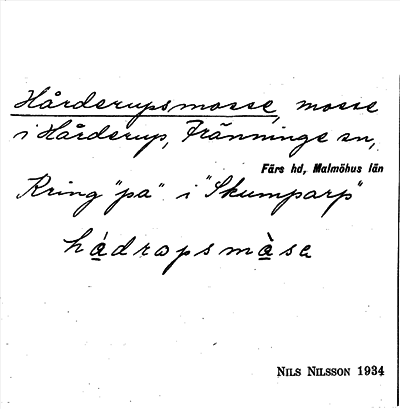 Hårderupsmosse, mosse
i Hårderup, Fränninge sn,
Färs hd, Malmöhus län
Kring "pa" i "Skumparp"
hádrapsmàsa
NILS NILSSON 1934